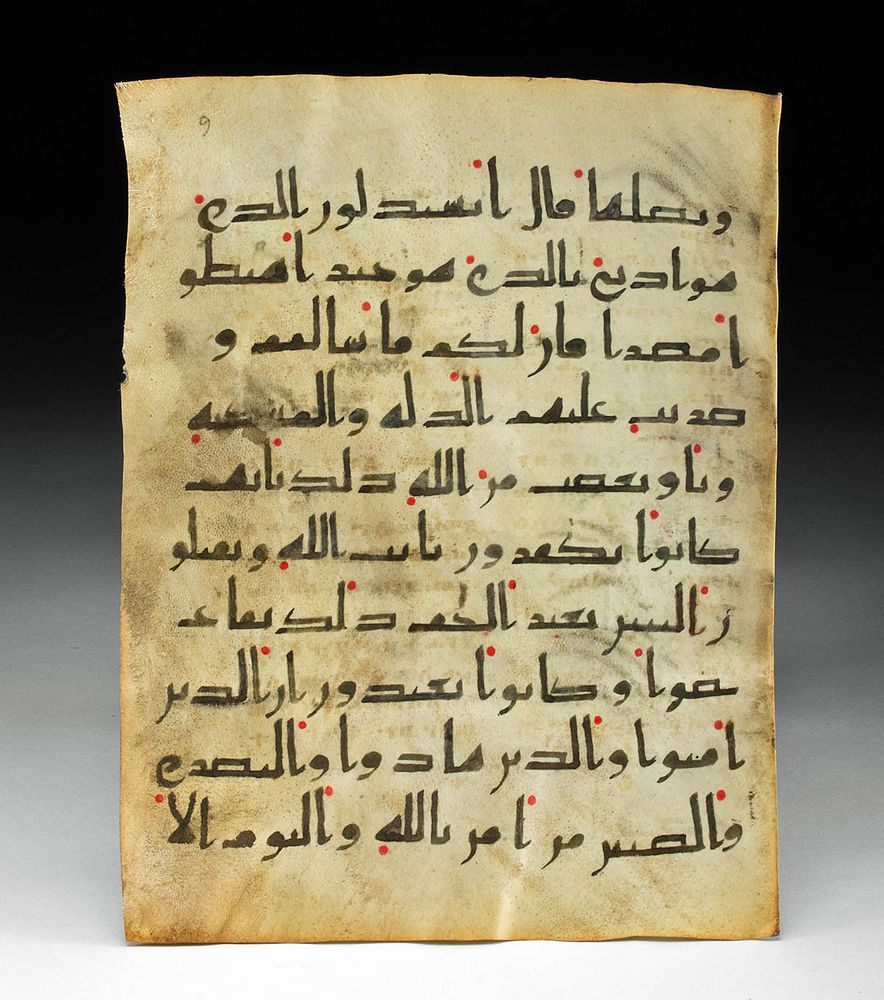 9
وبصلها قال اتستبدلون الذى
هو ادنى بالذى هو خير اهبطو
ا مصرا فان لكم ما سالتم و
ضربت عليهم الذلة والمسكنة
وباو بغضب من الله ذلك بانهم
كانوا يكفرون بايت الله ويقتلو
ن النبين بغير الحق ذلك بما ع
صوا وكانوا يعتدون ان الذين
امنوا والذين هادوا والنصرى
والصبين من امن بالله واليوم الا